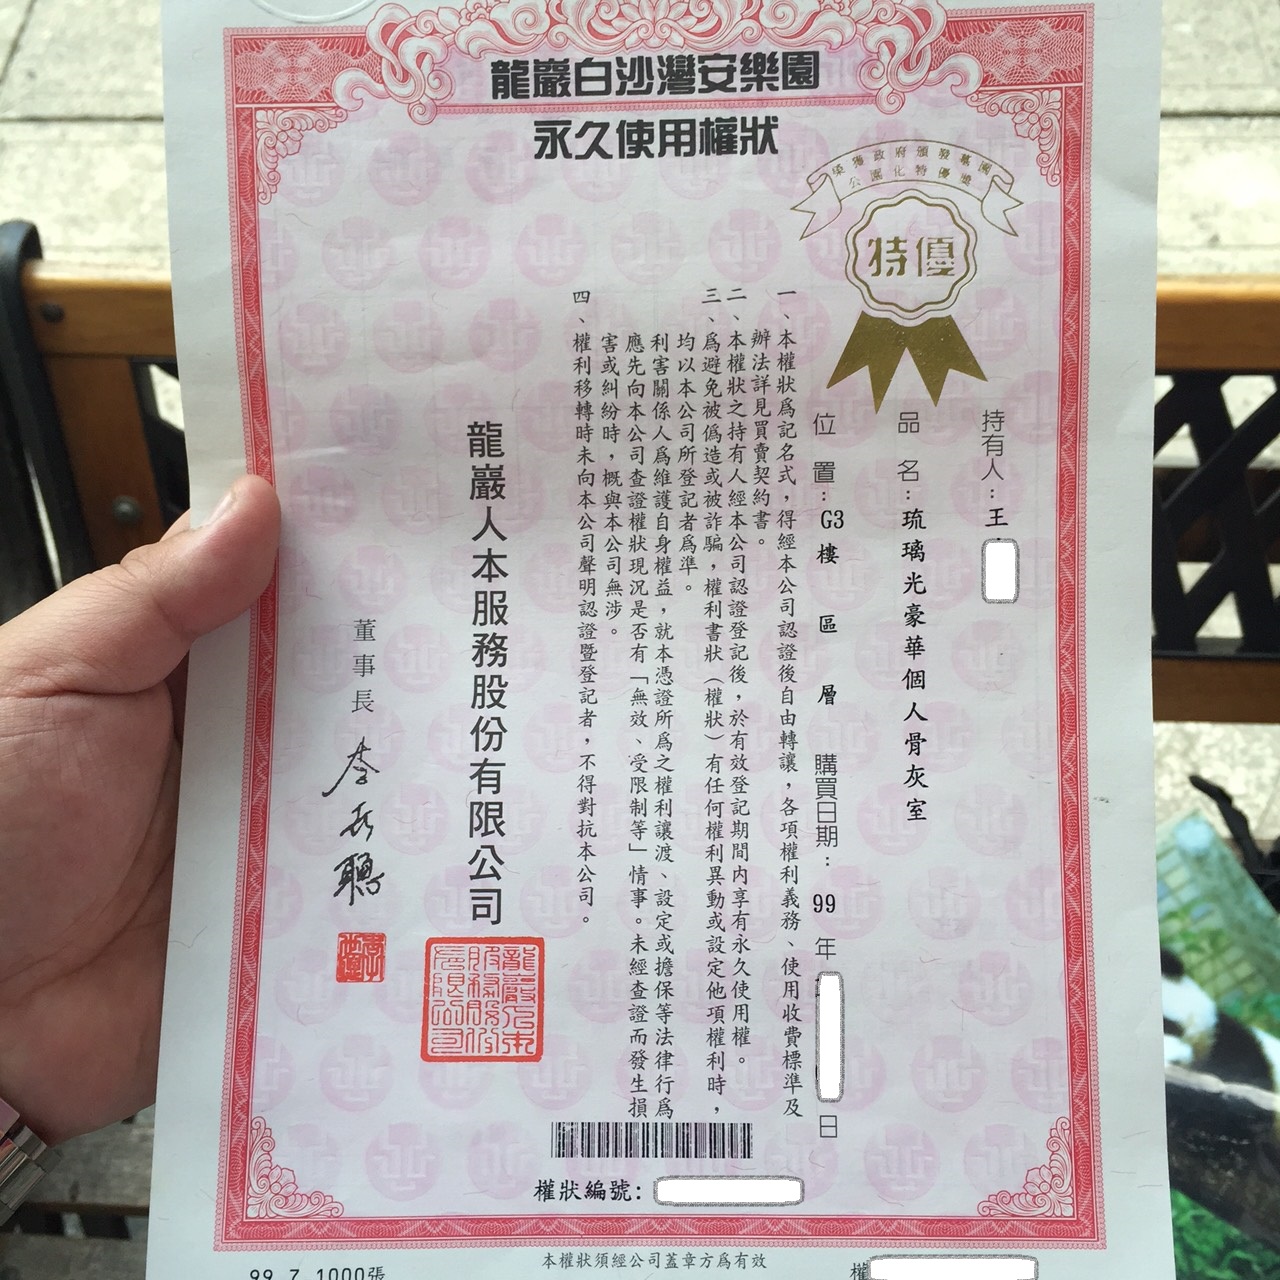 龍巖白沙灣安樂園
永久使用權狀
榮獲政府頒發墓園
公園化特優獎
特優
持有人：王
品名：琉璃光豪華個人骨灰室
位置：G3樓 區 層 購買日期：99年 日
一、本權狀為記名式，得經本公司認證後自由轉讓，各項權利義務、使用收費標準及
辦法詳見買賣契約書。
二、本權狀之持有人經本公司認證登記後，於有效登記期間內享有永久使用權。
三、為避免被偽造或被詐騙，權利書狀（權狀）有任何權利異動或設定他項權利時，
均以本公司所登記者為準。
利害關係人為維護自身權益，就本憑證所為之權利讓渡、設定或擔保等法律行為
應先向本公司查證權狀現況是否有「無效、受限制等」情事。未經查證而發生損
害或糾紛時，概與本公司無涉。
四、權利移轉時未向本公司聲明認證暨登記者，不得對抗本公司。
龍巖人本服務股份有限公司
龍巖人本服務股份有限公司
董事長 李世聰
權狀編號：
本權狀須經公司蓋章方為有效
99.7.1000張
權